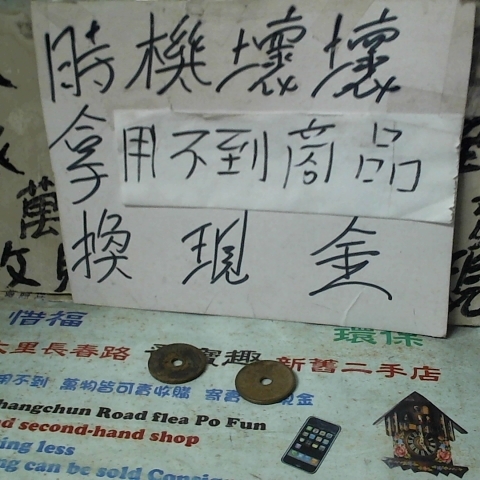 時機壞壞
拿用不到商品
換現金
萬
收
現
惜福
環保
大里長春路
寶趣
新舊二手店
用不到 萬物皆可賣收購 寄賣 現金
hangchun Road flea Po Fun
d second-hand shop
ing less
ng can be sold Consig